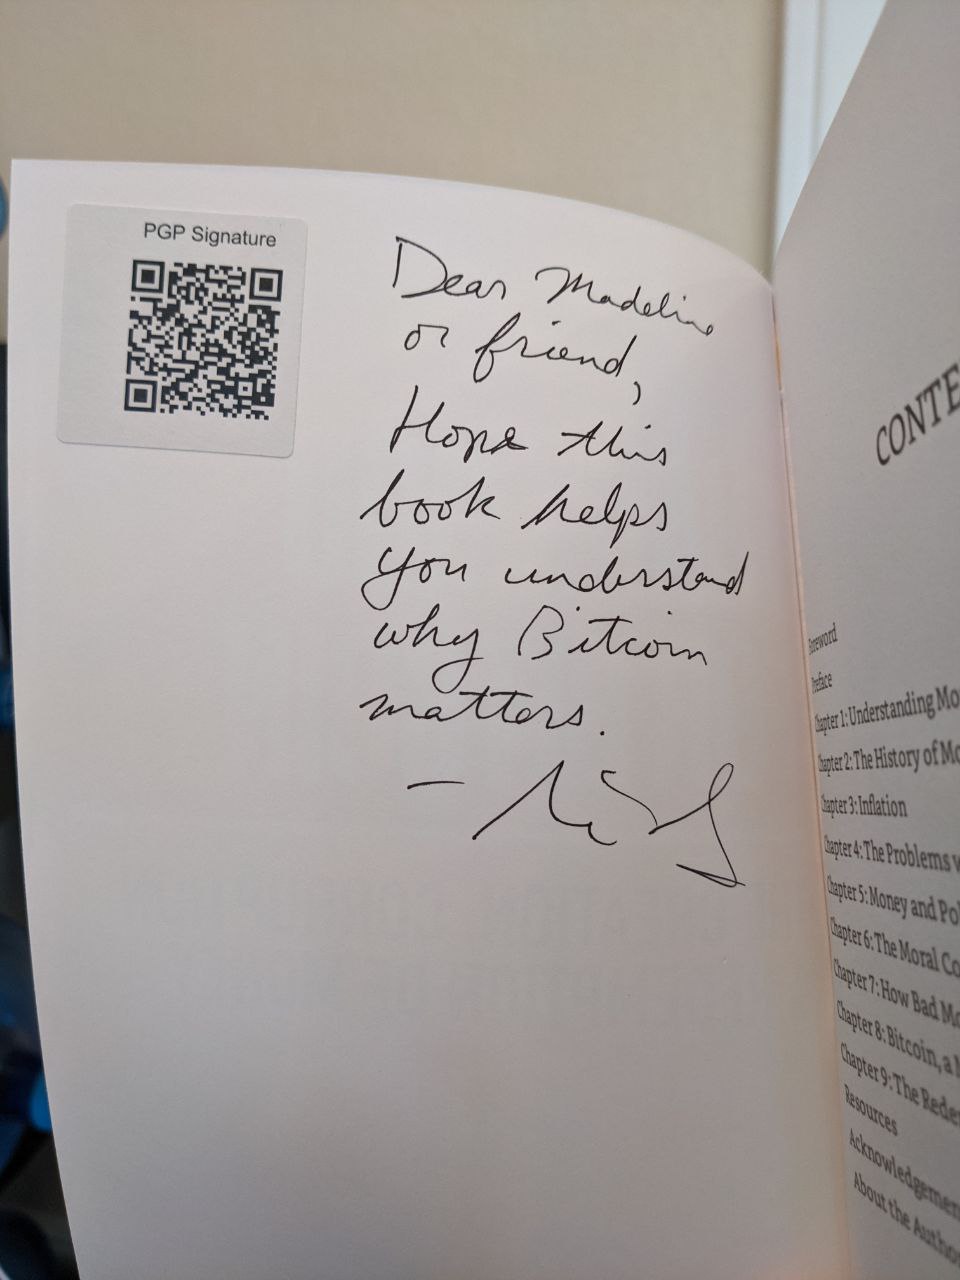 PGP Signature
Dear Madeline
or friend,
Hope this
book helps
you understand
why Bitcoin
matters.
CONTE
Foreword
Preface
Chapter 1: Understanding Mo
Chapter 2: The History of Mo
Chapter 3: Inflation
Chapter 4: The Problems w
Chapter 5: Money and Pol
Chapter 6: The Moral Co
Chapter 7: How Bad Mo
Chapter 8: Bitcoin, a
Chapter 9: The Rede
Resources
Acknowledgemen
About the Autho